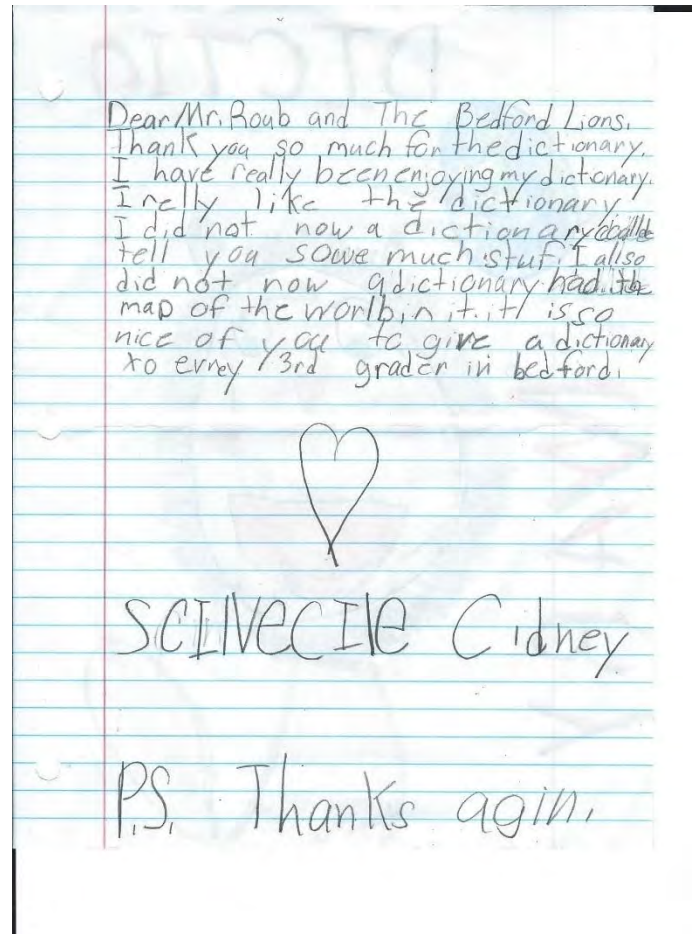 Dear Mr. Roub and The Bedford Lions,
Thank you so much for the dictionary.
I have really been enjoying my dictionary.
I relly like the dictionary
I did not now a dictionary
tell you sowe much stuf. I allso
did not now a dictionary had
map of the worlb in it. it is so
nice of you to give a dictionary
to evrey 3rd grader in bedford.
SCINECILE Cidney
P.S. Thanks agin.